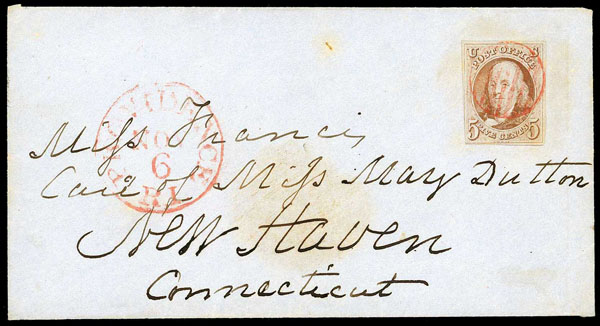 U S
POST OFFICE
5 FIVE CENTS 5
PROVIDENCE
NOV
6
R.I.
Miss Francis
Care of Miss Mary Dutton
New Haven
Connecticut